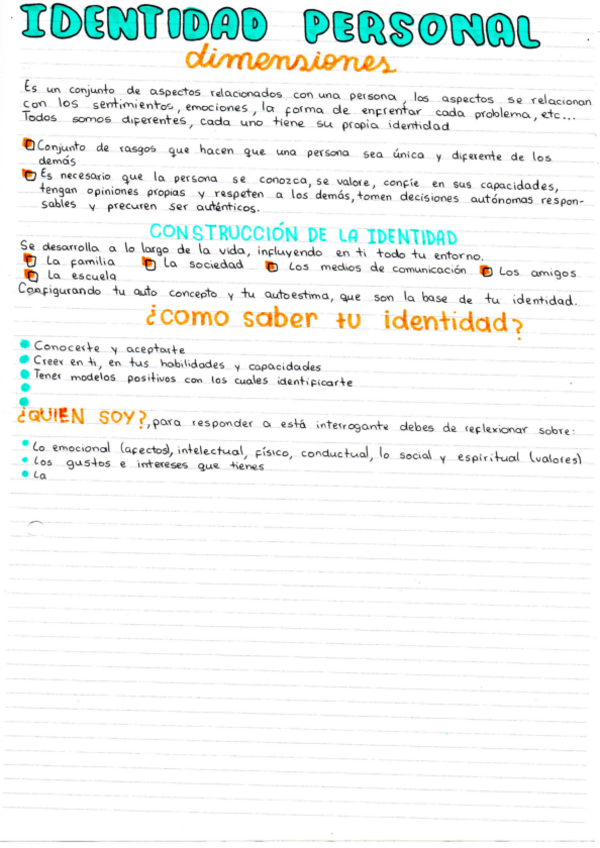 IDENTIDAD PERSONAL
dimensiones
Es un conjunto de aspectos relacionados con una persona, los aspectos se relacionan
con los sentimientos, emociones, la forma de enfrentar cada problema, etc...
Todos somos diferentes, cada uno tiene su propia identidad
Conjunto de rasgos que hacen que una persona sea única y diferente de los
demás
Es necesario que la persona se conozca, se valore, confíe en sus capacidades,
tengan opiniones propias y respeten a los demás, tomen decisiones autónomas respon-
sables y precuren ser auténticos.
CONSTRUCCIÓN DE LA IDENTIDAD
Se desarrolla a lo largo de la vida, influyendo en ti todo tu entorno.
La familia La sociedad Los medios de comunicación Los amigos
La escuela
Configurando tu auto concepto y tu autoestima, que son la base de tu identidad.
¿como saber tu identidad?
Conocerte y aceptarte
Creer en ti, en tus habilidades y capacidades
Tener modelos positivos con los cuales identificarte
¿QUIEN SOY?, para responder a está interrogante debes de reflexionar sobre:
Lo emocional (afectos), intelectual, físico, conductual, lo social y espiritual (valores)
Los gustos e intereses que tienes
La